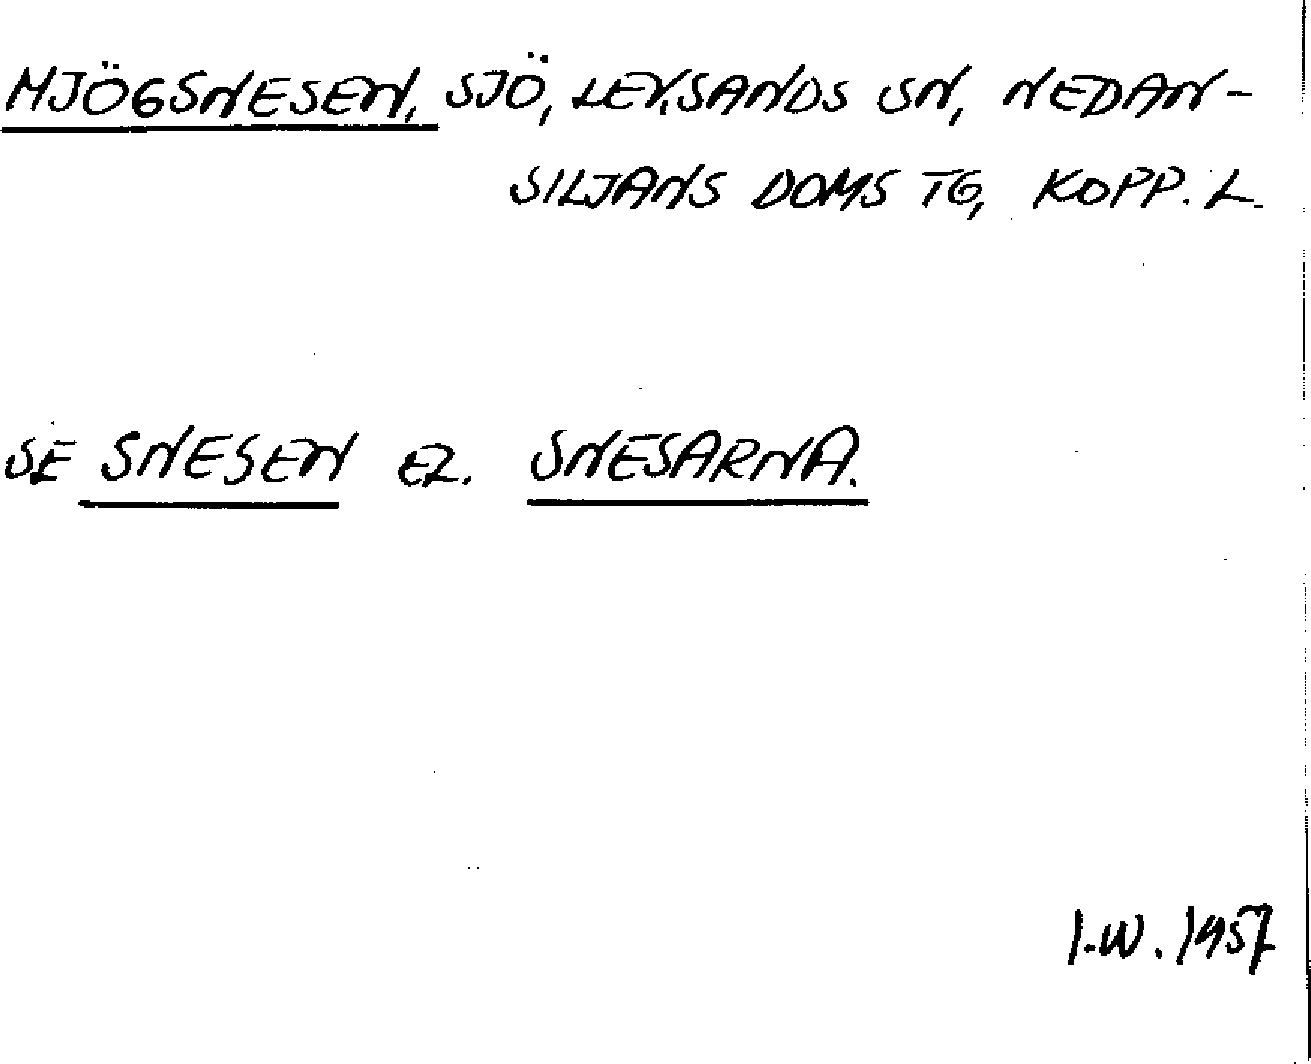 MJÖGSNESEN, SJÖ, LEKSANDS SN, NEDAN-
SILJANS DOMS TG, KOPP. L.
SE SNESEN EL. SNESARNA.
I.W. 1957